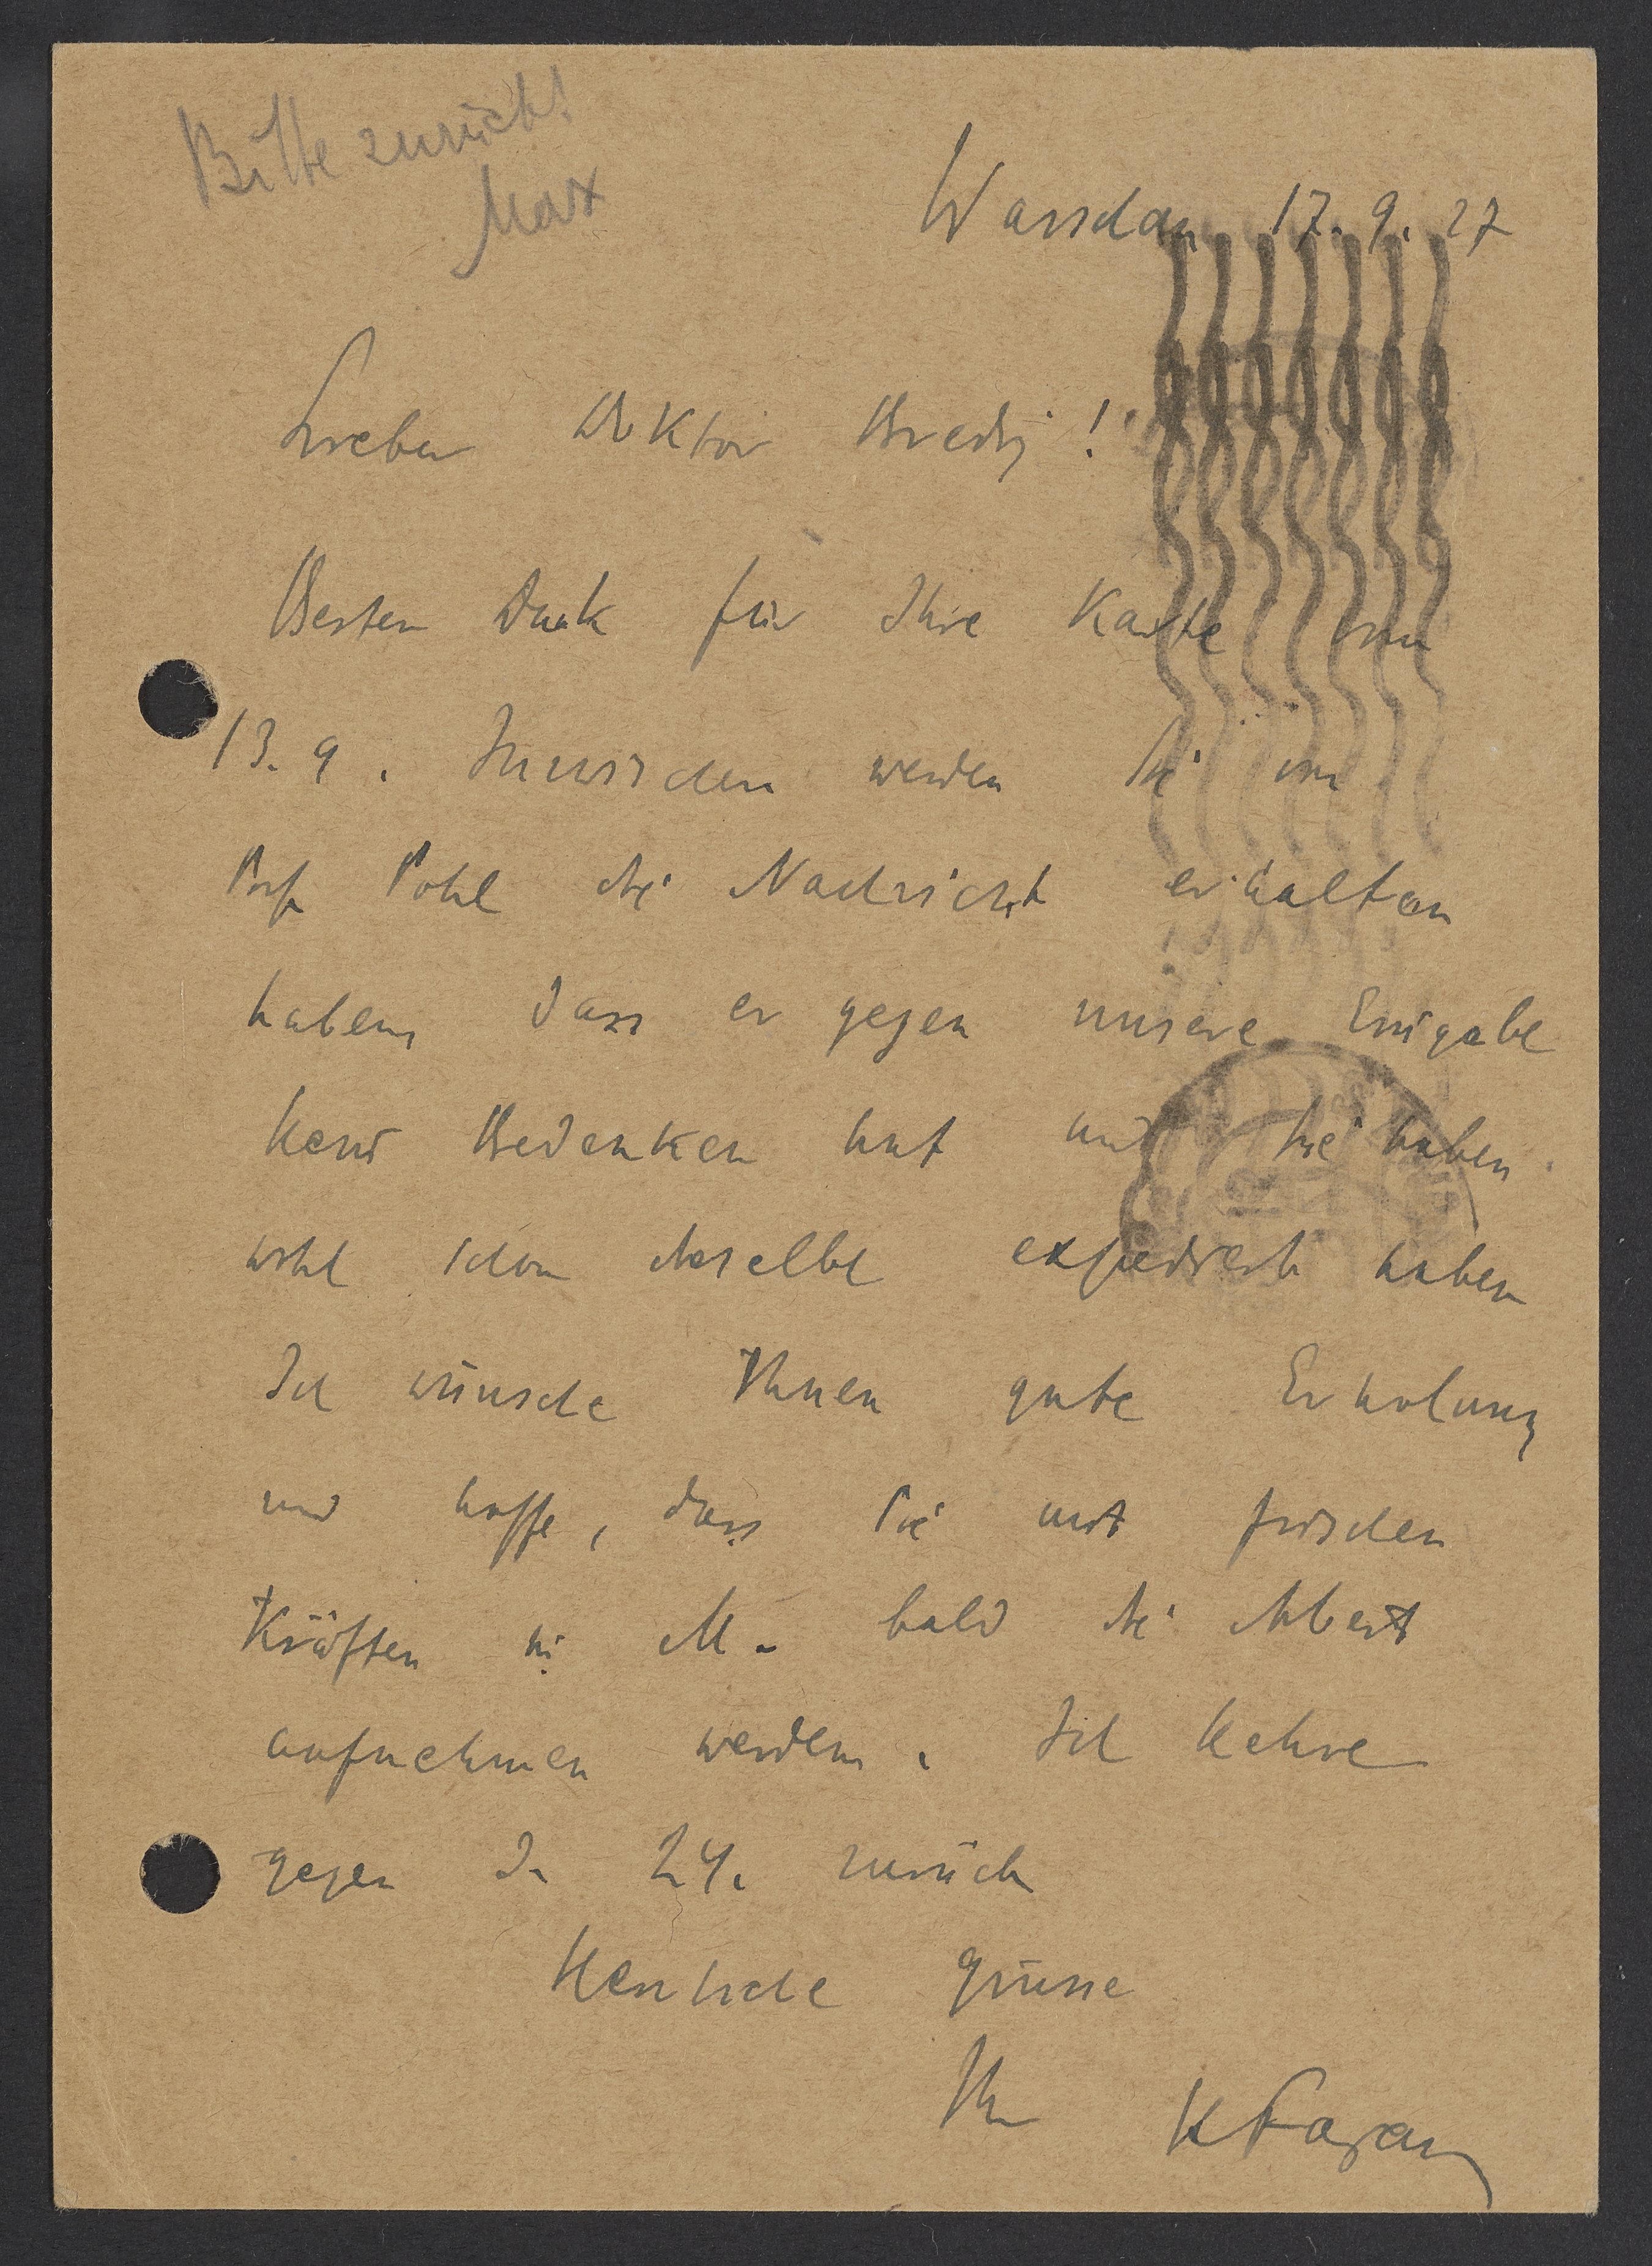 Bitte zurück!
Max
Warschau 17. 9. 27
Lieber Doktor Bredig!
Besten Dank für Ihre Karte vom
13. 9. Inzwischen werden Sie von
Prof Pohl die Nachricht erhalten
haben, dass er gegen unsere Eingabe
kein Bedenken hat und Sie haben
wohl schon dieselbe expediert haben
Ich wünsche Ihnen gute Erholung
und hoffe, dass Sie mit frischen
Kräften in M. bald die Arbeit
aufnehmen werden. Ich kehre
gegen d. 24. zurück
Herzliche Grüsse
Ihr K Fajans